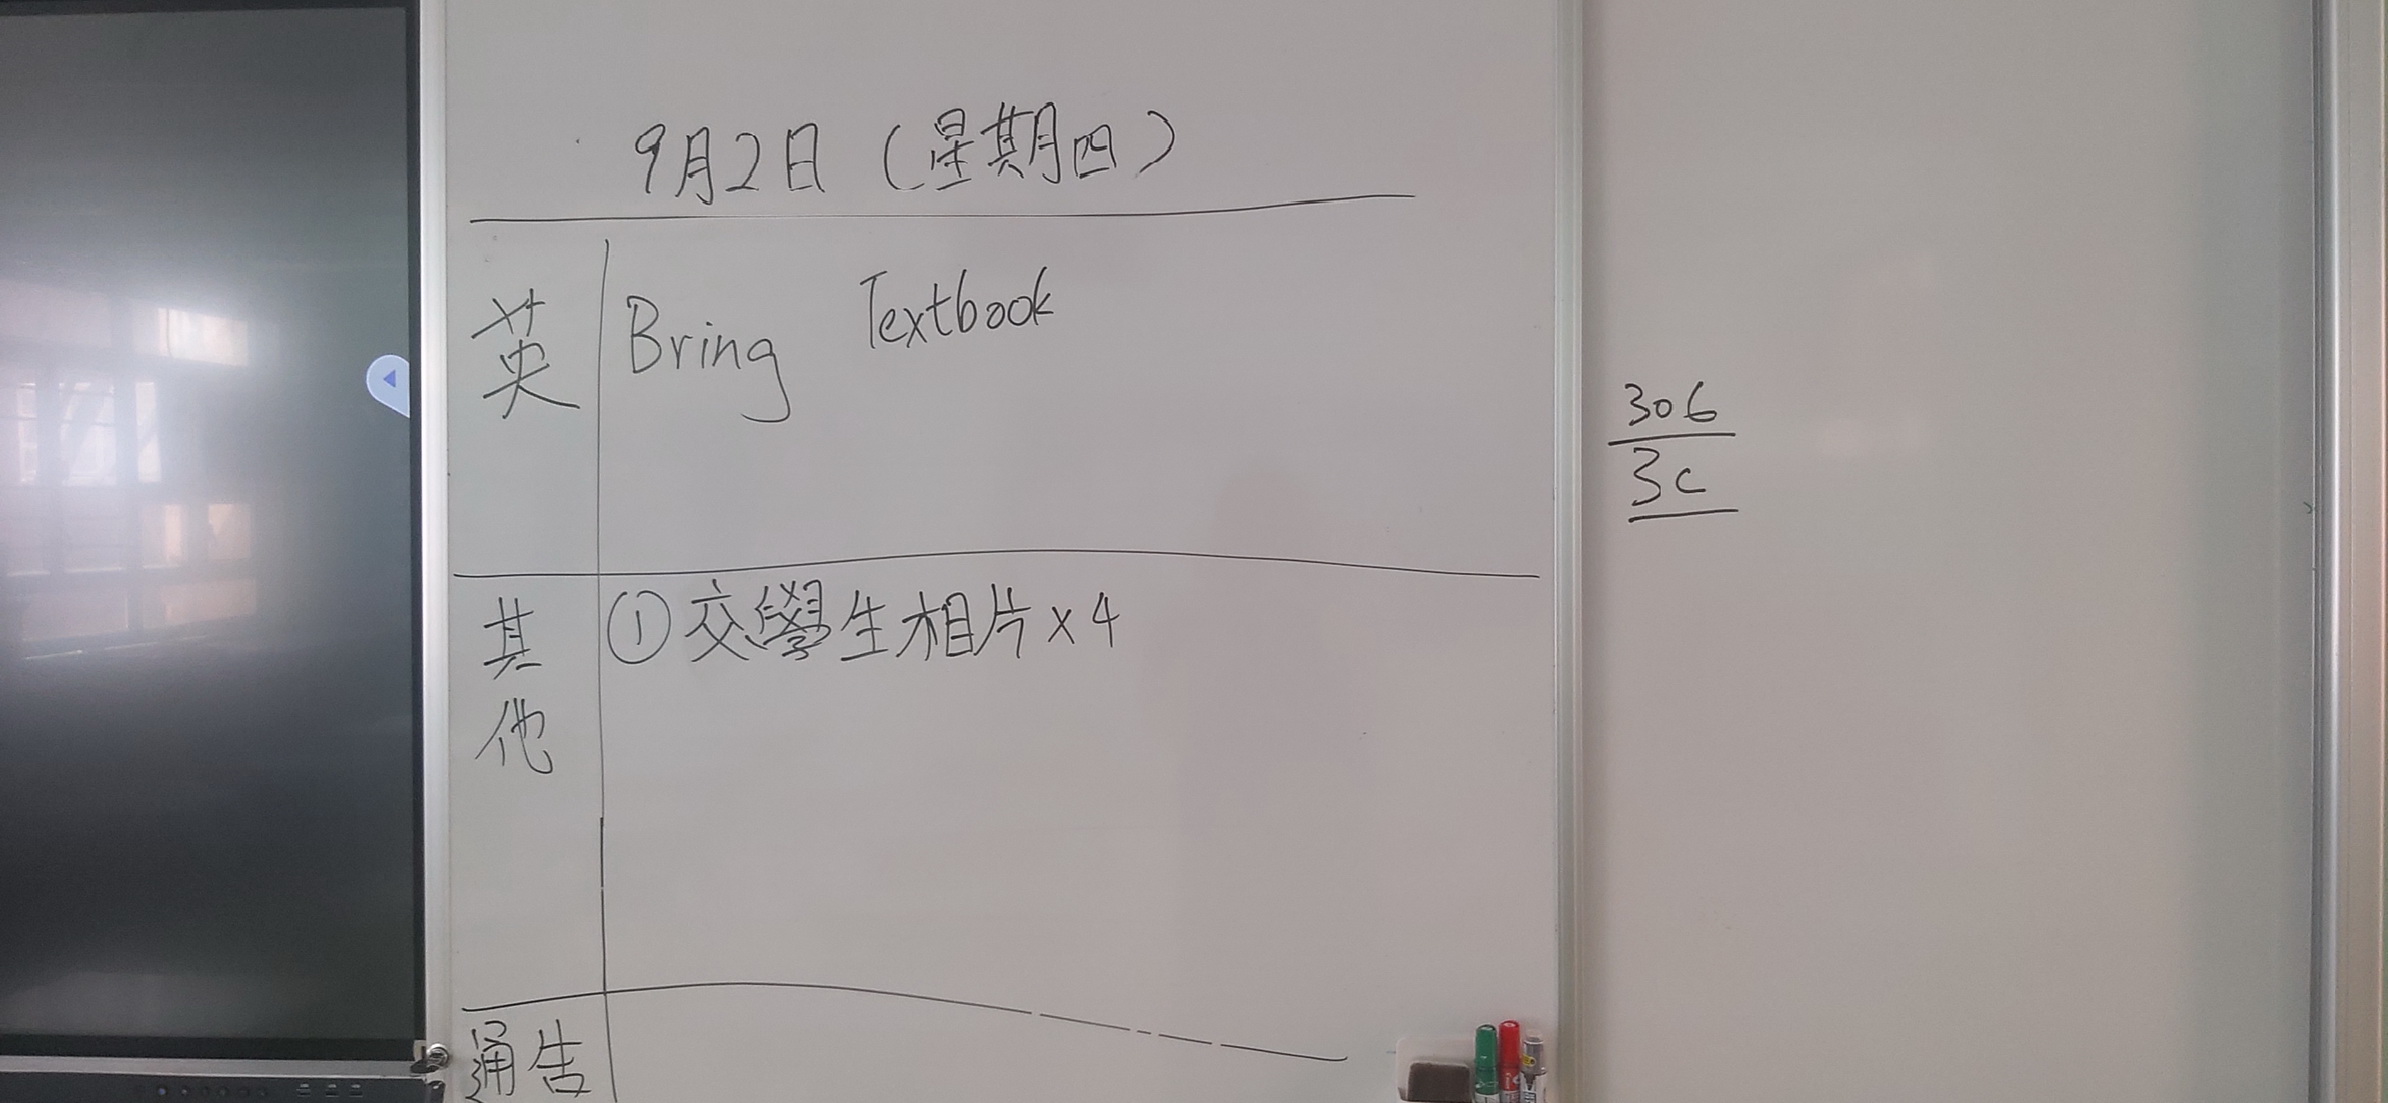 9月2日（星期四）
英 Bring Textbook
其他 ①交學生相片x4
通告
306
3C